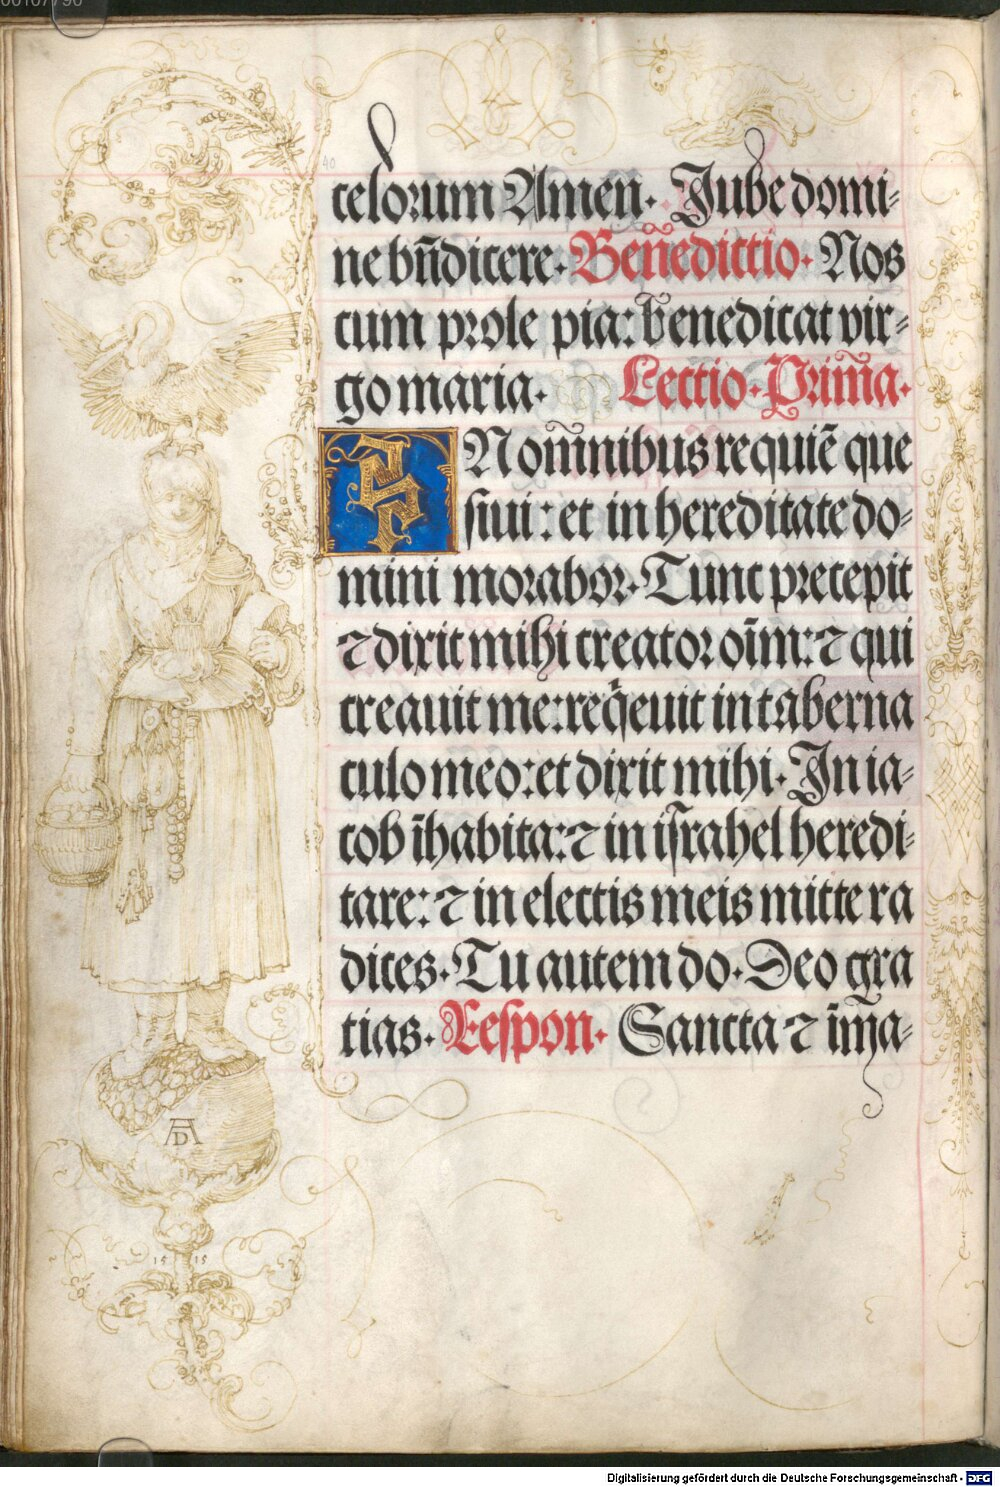 celorum Amen. Jube domi-
ne bn̄dicere. Beñedictio. Nos
cum prole pia: benedicat vir-
go maria. Lectio. Prim̄a.
IN om̄nibus requiē que
siui: et in hereditate do-
mini morabor. Tunc precepit
⁊ dixit mihi creator oīm: ⁊ qui
creauit me: reqͥeuit in taberna
culo meo: et dixit mihi. In ia-
cob īhabita: ⁊ in iſrahel heredi-
tare: ⁊ in electis meis mitte ra
dices. Tu autem do. Deo gra
tias. Reſpon. Sancta ⁊ īma-
40
AD
1515
Digitalisierung gefördert durch die Deutsche Forschungsgemeinschaft - DFG